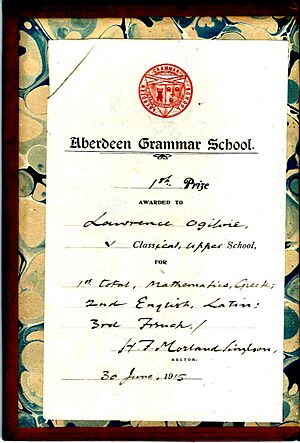 ABERDEEN GRAMMAR SCHOOL
Aberdeen Grammar School.
1st. Prize
AWARDED TO
Lawrence Ogilvie,
V Classical, Upper School,
FOR
1st total, Mathematics, Greek;
2nd English, Latin;
3rd French /
H F. Morland Simpson,
RECTOR.
30 June, 1915